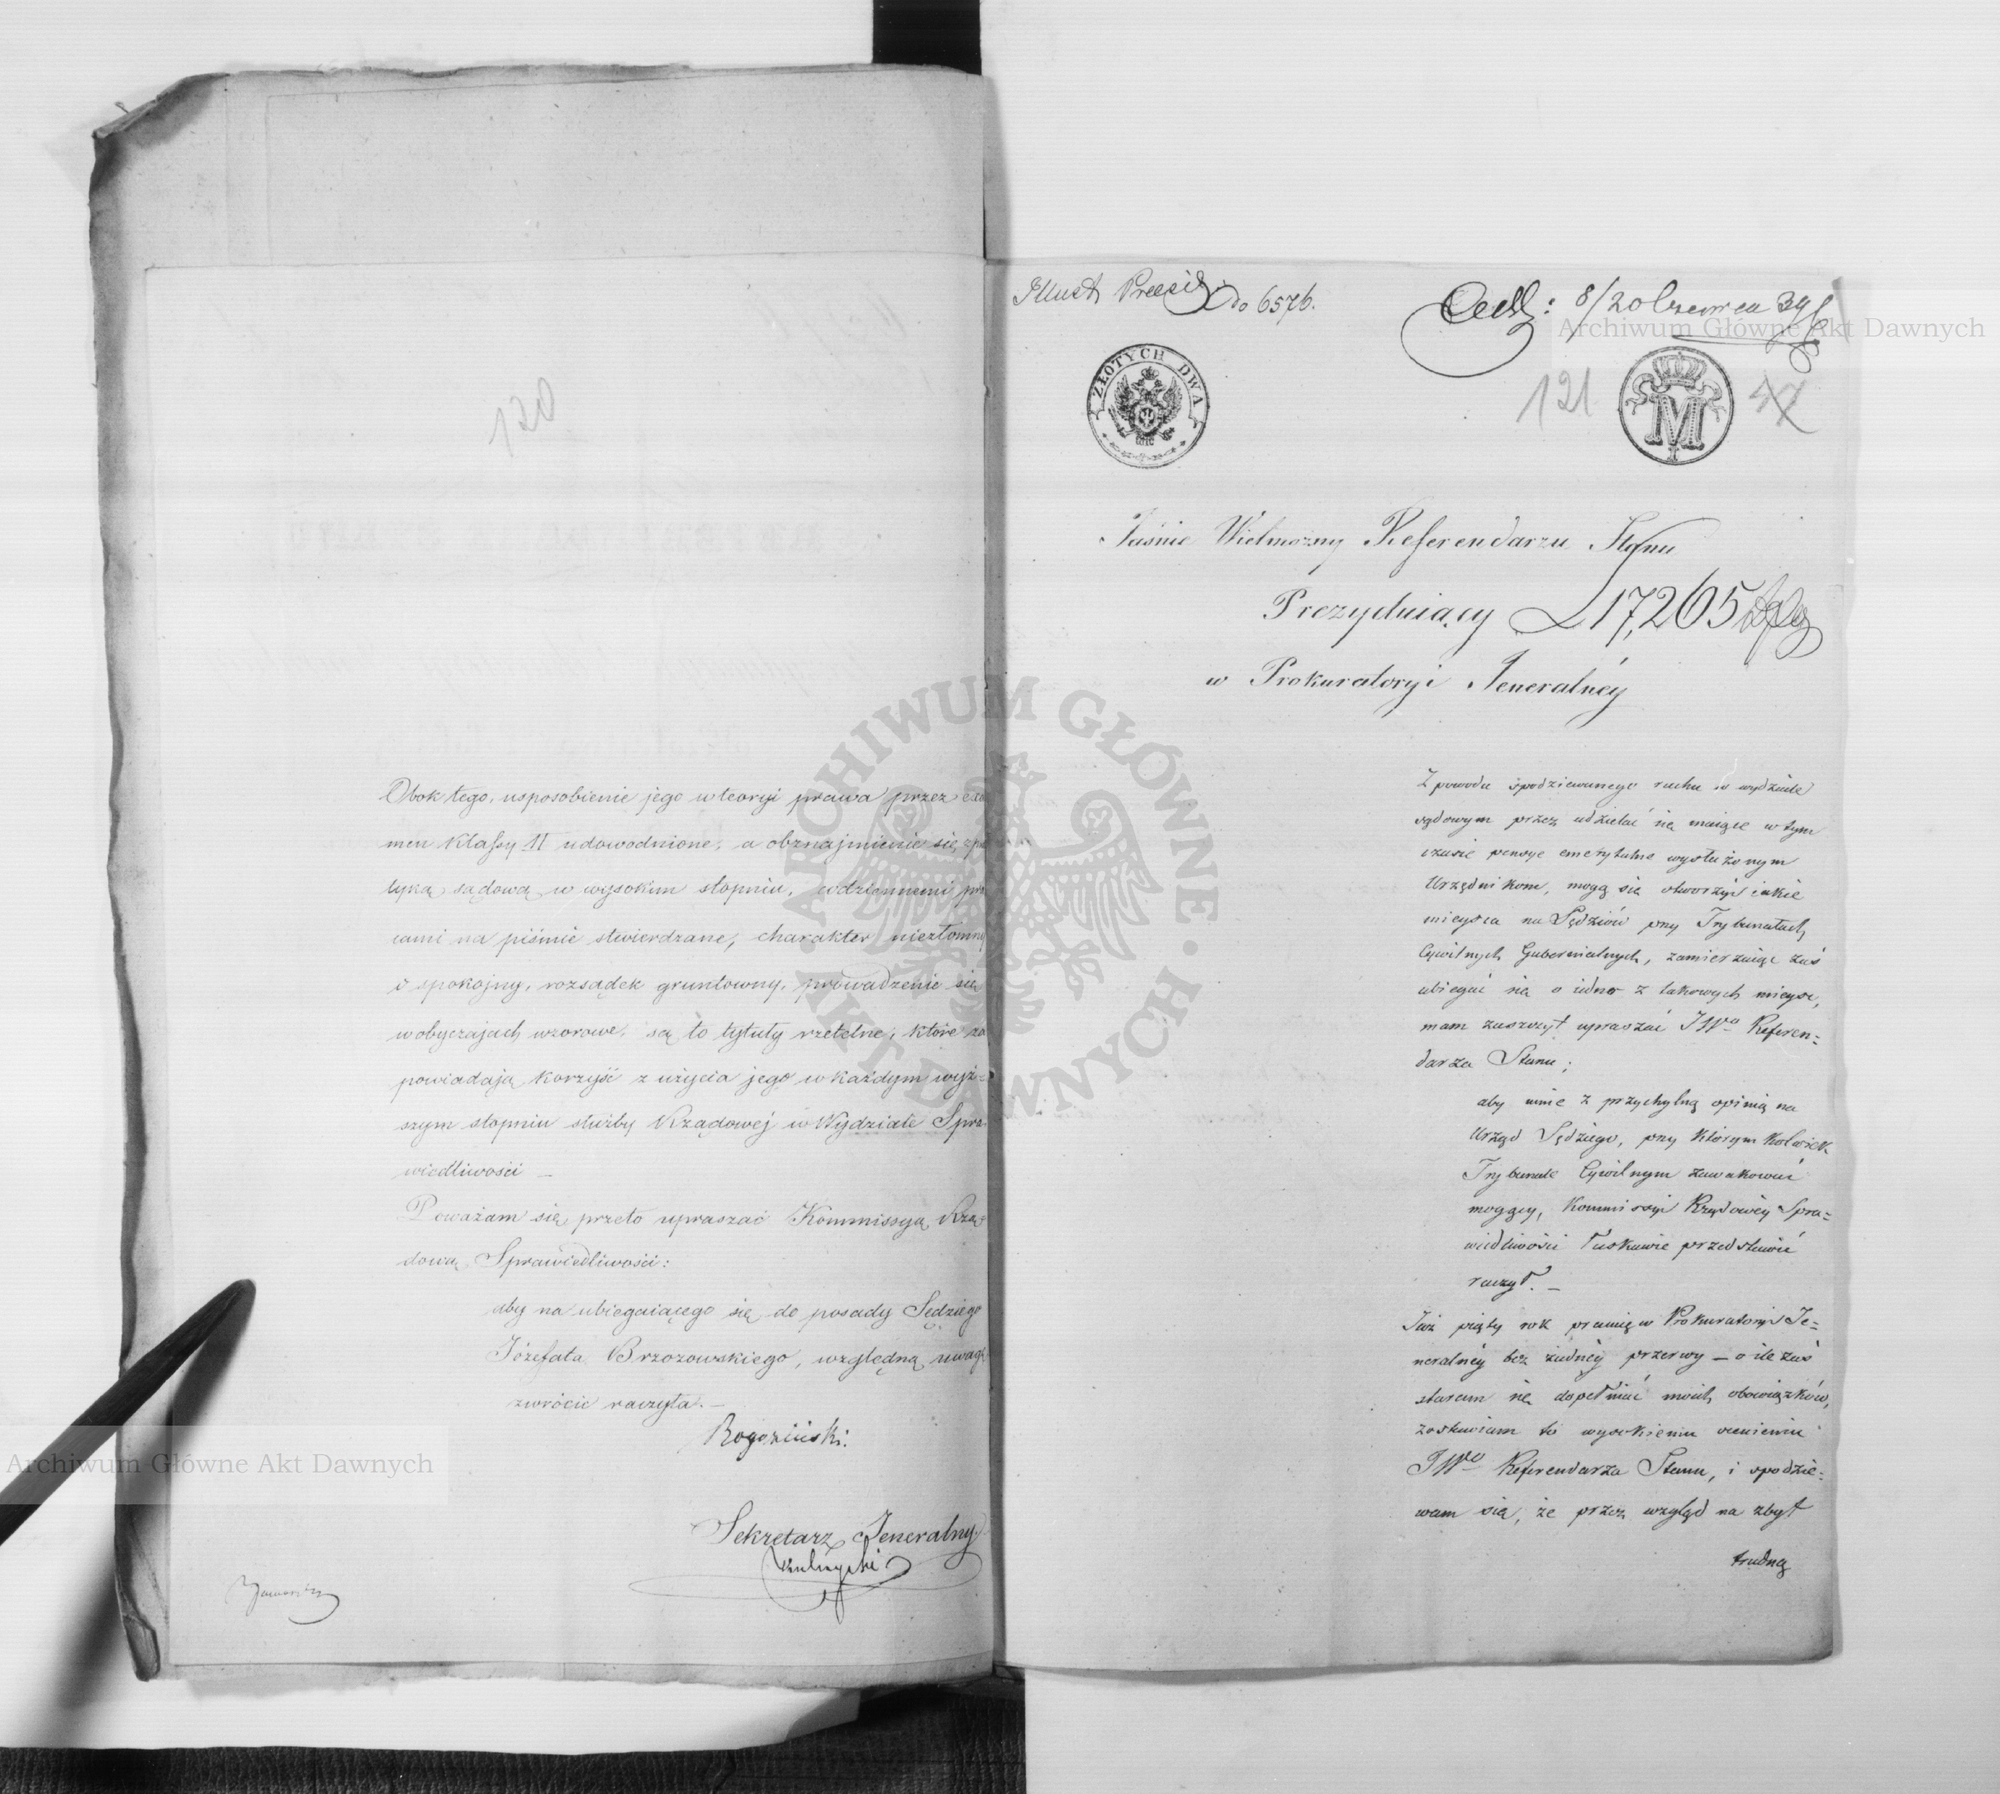 120
Obok tego, usposobienie jego w teoryi prawa przez exa
men klassy II udowodnione, a obznajmienie się z pra
tyką sądową w wysokim stopniu, codziennemi pra
cami na piśmie stwierdzane, charakter niezłomny
i spokojny, rozsądek gruntowny, prowadzenie się
w obyczajach wzorowe, są to tytuły rzetelne, które za
powiadają korzyść z użycia jego w każdym wyż=
szym stopniu służby Rządowej w Wydziale Spra
wiedliwości —
Poważam się przeto upraszać Kommissyą Rzą=
dową Sprawiedliwości:
aby na ubiegaiącego się do posady Sędziego
Józefata Brzozowskiego, względną uwagę
zwrócić raczyła. —
Rogoziński.
Sekretarz Jeneralny
do 6576.
8/20 Czerwca 39
121
47
ZŁOTYCH DWA
M
I
Jaśnie Wielmożny Referendarzu Stanu
Prezyduiący
17,265
w Prokuratoryi Jeneralnéy
Z powodu spodziewanego ruchu w wydziale
sądowym przez udzielać się maiące w tym
czasie pensye emerytalne wysłużonym
Urzędnikom, mogą się otworzyć iakie
mieysca na Sędziów przy Trybunałach
Cywilnych Gubernialnych, zamierzaiąc zaś
ubiegać się o iedno z takowych mieysc,
mam zaszczyt upraszać JWo Referen=
darza Stanu;
aby mnie z przychylną opinią na
Urząd Sędziego, przy którym kolwiek
Trybunale Cywilnym zawakować
mogący, Kommissyi Rządowéy Spra=
wiedliwości łaskawie przedstawić
raczył. —
Już piąty rok pracuię w Prokuratoryi Je=
neralnéy bez żadnéy przerwy — o ile zaś
staram się dopełniać moich obowiązków,
zostawiam to wysokiemu ocenieniu
JWo Referendarza Stanu, i spodzie=
wam się, że przez wzgląd na zbyt
trudną
Archiwum Główne Akt Dawnych
Archiwum Główne Akt Dawnych
ARCHIWUM GŁÓWNE · AKT DAWNYCH ·